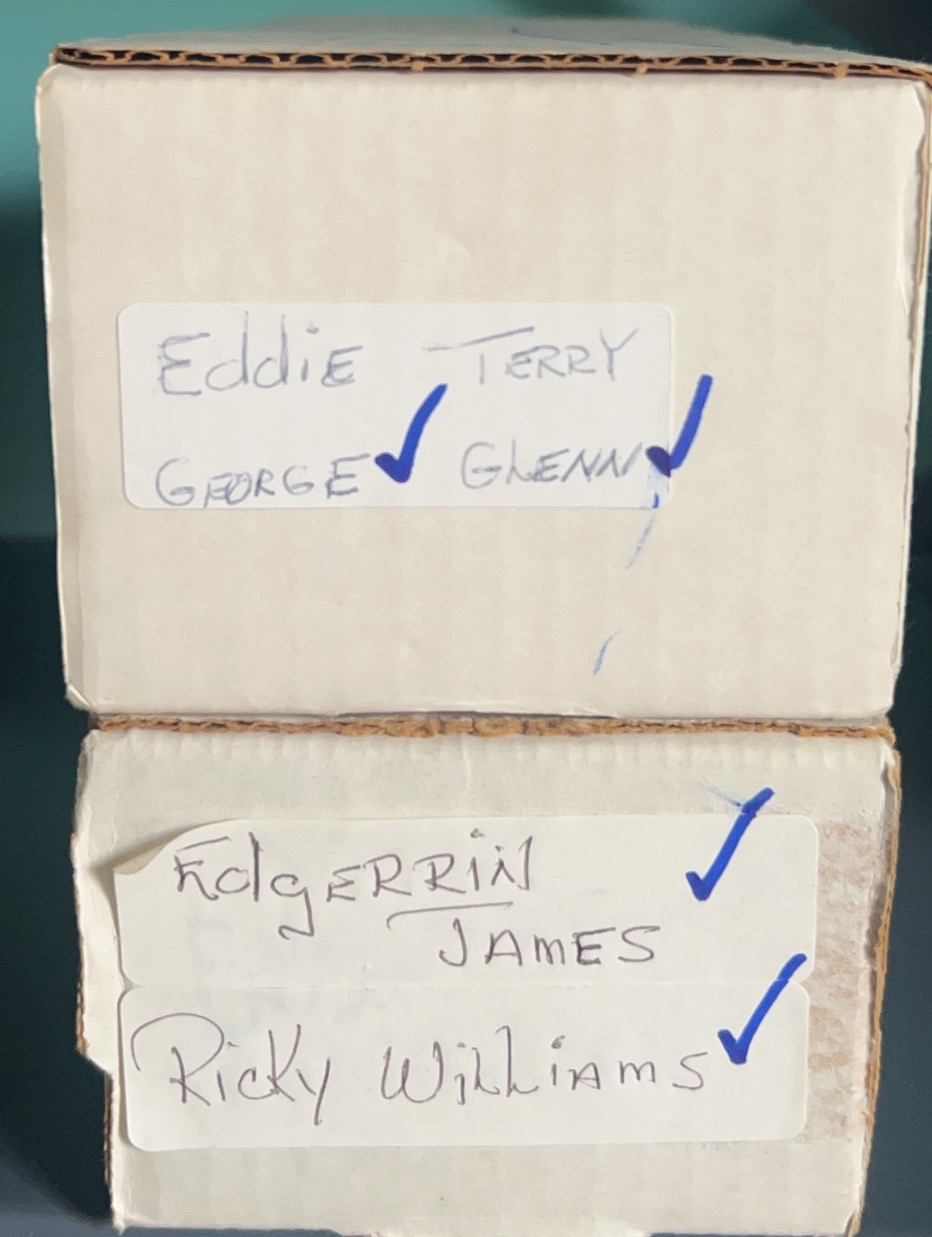 Eddie GEORGE ✓
TERRY GLENN ✓
EdgERRiN ✓
JAMES
RicKy WilliAmS ✓